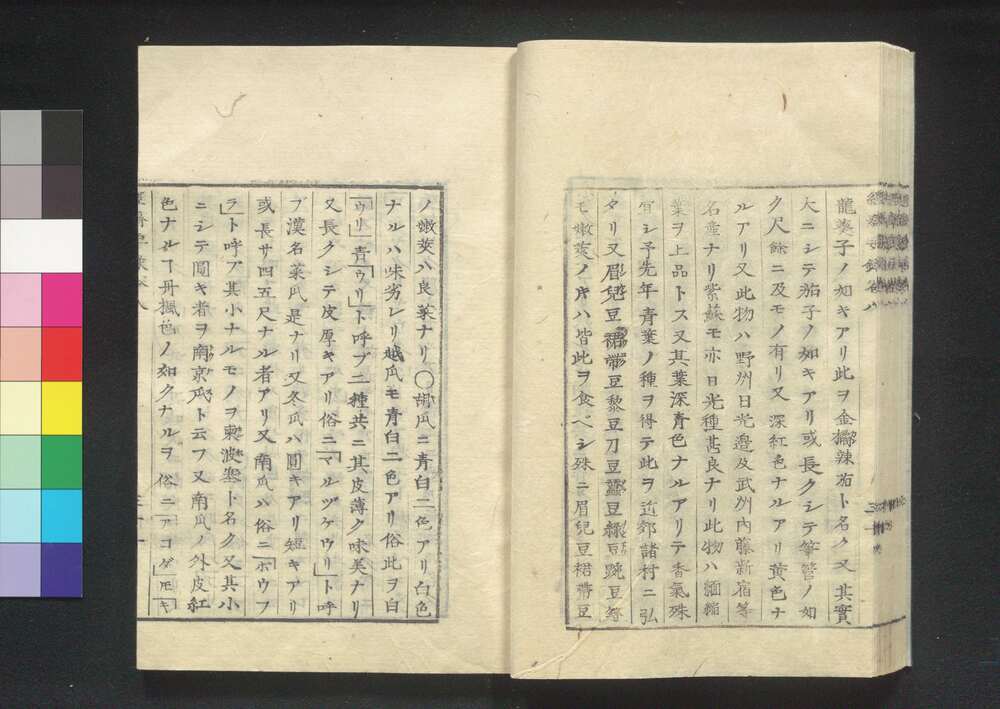 龍葵子ノ如キアリ此ヲ金橘辣茄ト名ク又其實
大ニシテ茄子ノ如キアリ或長クシテ筆管ノ如
ク尺餘ニ及モノ有リ又深紅色ナルアリ黄色ナ
ルアリ又此物ハ野州日光邉及武州内藤新宿等
名産ナリ紫蘇モ亦日光種甚良ナリ此物ハ縮緬
葉ヲ上品トス又其葉深青色ナルアリテ香氣殊
ニシ予先年青葉ノ種ヲ得テ此ヲ近郊諸村ニ弘
タリ又眉兒豆裙帶豆藜豆刀豆蠶豆緑豆豌豆等
モ嫩莢ノ片ハ皆此ヲ食ベシ殊ニ眉兒豆裙帶豆
ノ嫩莢ハ良菜ナリ〇胡瓜ニ青白二色アリ白色
ナルハ味劣レリ越瓜モ青白二色アリ俗此ヲ白
「ウリ」青「ウリ」ト呼ブ二種共ニ其皮薄ク味美ナリ
又長クシテ皮厚キアリ俗ニ「マルヅケウリ」ト呼
ブ漢名菜瓜是ナリ又冬瓜ハ圓キアリ短キアリ
或長サ四五尺ナル者アリ又南瓜ハ俗ニ「ボウフ
ラ」ト呼ブ其小ナルモノヲ東波塞ト名ク又其小
ニシテ圓キ者ヲ南京瓜ト云フ又南瓜ノ外皮紅
色ナルヿ丹楓色ノ如クナルヲ俗ニ「アコダモキ